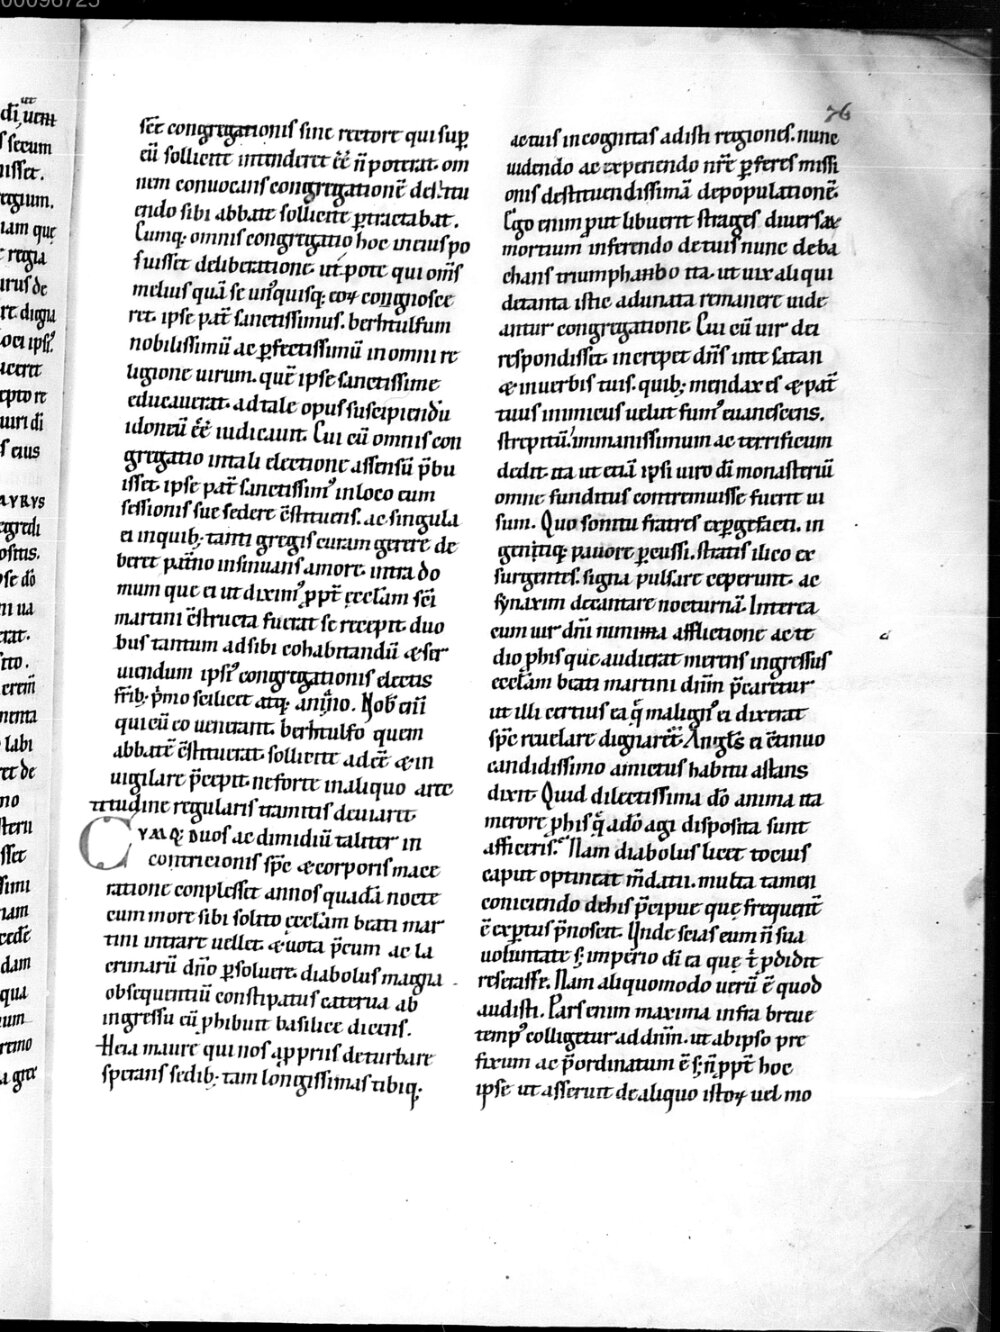 00098725
76
sēt congregationis sine rectore qui sup̄
eū sollicite intenderet eēē n̄ poterat. om
nem conuocans congregationē de ꝯstitu
endo sibi abbate sollicite ꝑtractabat.
Cumq; omnis congregatio hoc in eius po
suisset deliberatione. ut pote qui om̄s
melius quā se unꝰquisq; eoꝝ congnosce
ret. ipse pat̄ sanctissimus. berhtulfum
nobilissimū ac ꝑfectissimū in omni re
ligione uirum. quē ipse sanctissime
educauerat. ad tale opus suscipiendū
idoneū eē̄ iudicauit. Cui cū omnis con
gregatio in tali electione assensū p̄bu
isset. ipse pat̄ sanctissimꝰ in loco eum
sessionis sue sedere ꝯstituens. ac singula
ei in quib; tanti gregis curam gerere de
beret pat̄no insinuans amore. intra do
mum que ei ut diximꝰ ꝓpt̄ ęcclam sc̄i
martini ꝯstructa fuerat se recepit. duo
bus tantum ad sibi cohabitandū & ser
uiendum ipsiꝰ congregationis electis
fr̄ib; p̄mo scilicet atq; anino. Nob̄ enī
qui cū eo uenerant. berhtulfo quem
abbatē ꝯstituerat. sollicite adeē̄ & in
uigilare p̄cepit. ne forte in aliquo arte
titudine regularis tramitis deuiaret.
CVMQ; DUOS ac dimidiū taliter in
contricionis sp̄c & corporis mace
ratione conplesset annos. quadā nocte
cum more sibi solito ęcclam beati mar
tini intrare uellet. & uota p̄cum ac la
crimarū dn̄o ꝑsoluere. diabolus magna
obsequentiū constipatus caterua ab
ingressu eū phibuit basilice dicens.
Heia maure qui nos a ꝓpriis deturbare
sperans sedib; tam longissimas tibiq;
ac tuis incognitas adisti regiones. nunc
uidendo ac experiendo nr̄e ꝑferes missi
onis destituendissimā depopulationē.
Ego enim ꝓut libuerit strages diuersas
mortium inferendo de tuis nunc deba
chans triumphanbo ita. ut uix aliqui
de tanta istic adunata remanere uide
antur congregatione. Cui cū uir dei
respondisset. increpet dn̄s inte satan
& in uerbis tuis. quib; mendax es & pat̄
tuus inimicus uelut fumꝰ euanescens.
strepitū immanissimum ac terrificum
dedit. ita ut etiā ipsi uiro di monasteriū
omne funditus contremuisse fuerit ui
sum. Quo sonitu fratres exꝑgefacti. in
gentiq; pauore ꝑcussi. statis ilico ex
surgentes. signa pulsare ceperunt. ac
synaxim decantare nocturnā. Interea
cum uir dn̄i nimma afflictione ac te
dio phis que audierat merens ingressus
ecclam beati martini dn̄m p̄caretur
ut illi certius ea q̄ malignꝰ ei dixerat
sp̄c reuelare dignaret̄. Anglꝰs ei ꝯtinuo
candidissimo amictus habitu astans
dixit. Quid dilectissima dō anima ita
merore phis q̄ a dō agi disposita sunt
afficeris. Nam diabolus licet tocius
caput optineat m̄dacii. multa tamen
coniciendo de his p̄cipue que frequent̄
ē exꝑtus p̄noscit. Unde scias eum n̄ sua
uoluntate s; imperio di ea que t̄ ꝓdidit
reserasse. Nam aliquomodo uerū ē quod
audisti. Pars enim maxima infra breue
tempꝰ colligetur ad dn̄m. ut ab ipso pre
fixum ac p̄ordinatum ē s; n̄ ꝓpt̄ hoc
ipse ut asserunt de aliquo istoꝝ uel mo